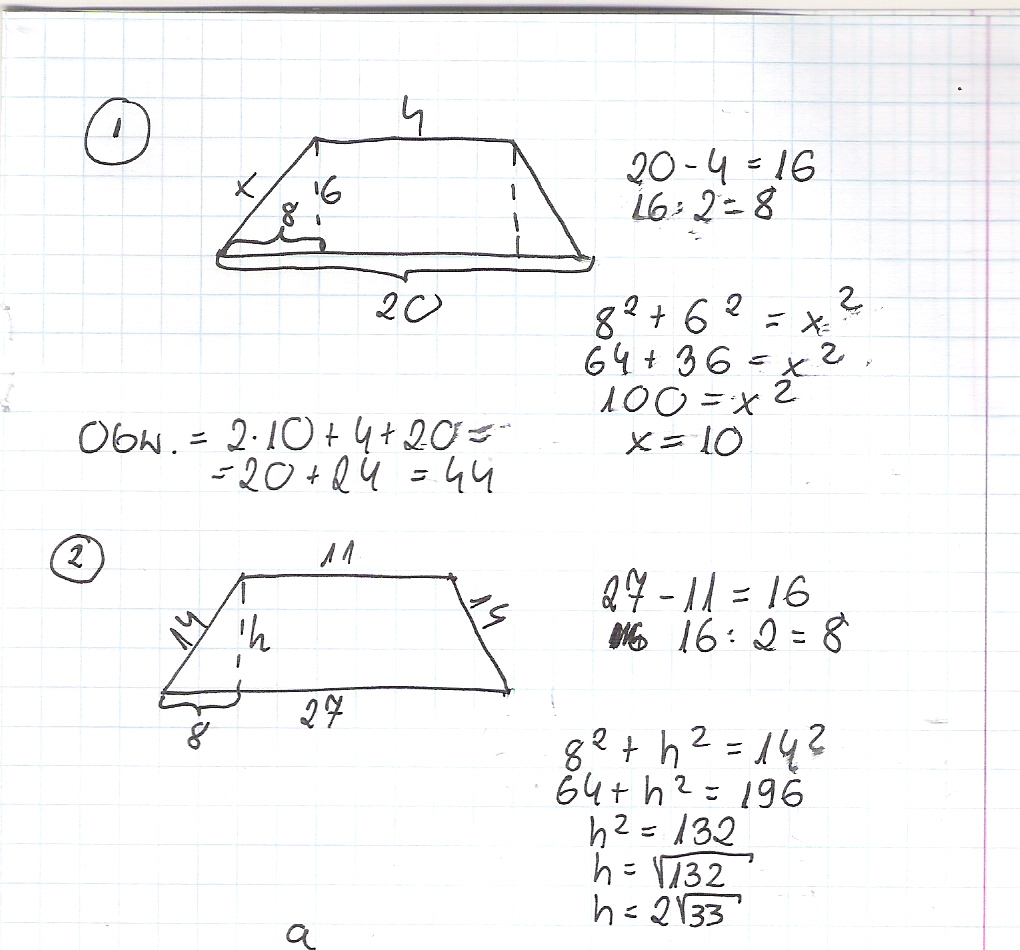 1
4
x
6
8
20
20 - 4 = 16
16 : 2 = 8
8² + 6² = x²
64 + 36 = x²
100 = x²
x = 10
Obw. = 2·10 + 4 + 20 =
= 20 + 24 = 44
2
11
14
14
h
8
27
27 - 11 = 16
16 : 2 = 8
8² + h² = 14²
64 + h² = 196
h² = 132
h = √132
h = 2√33
a